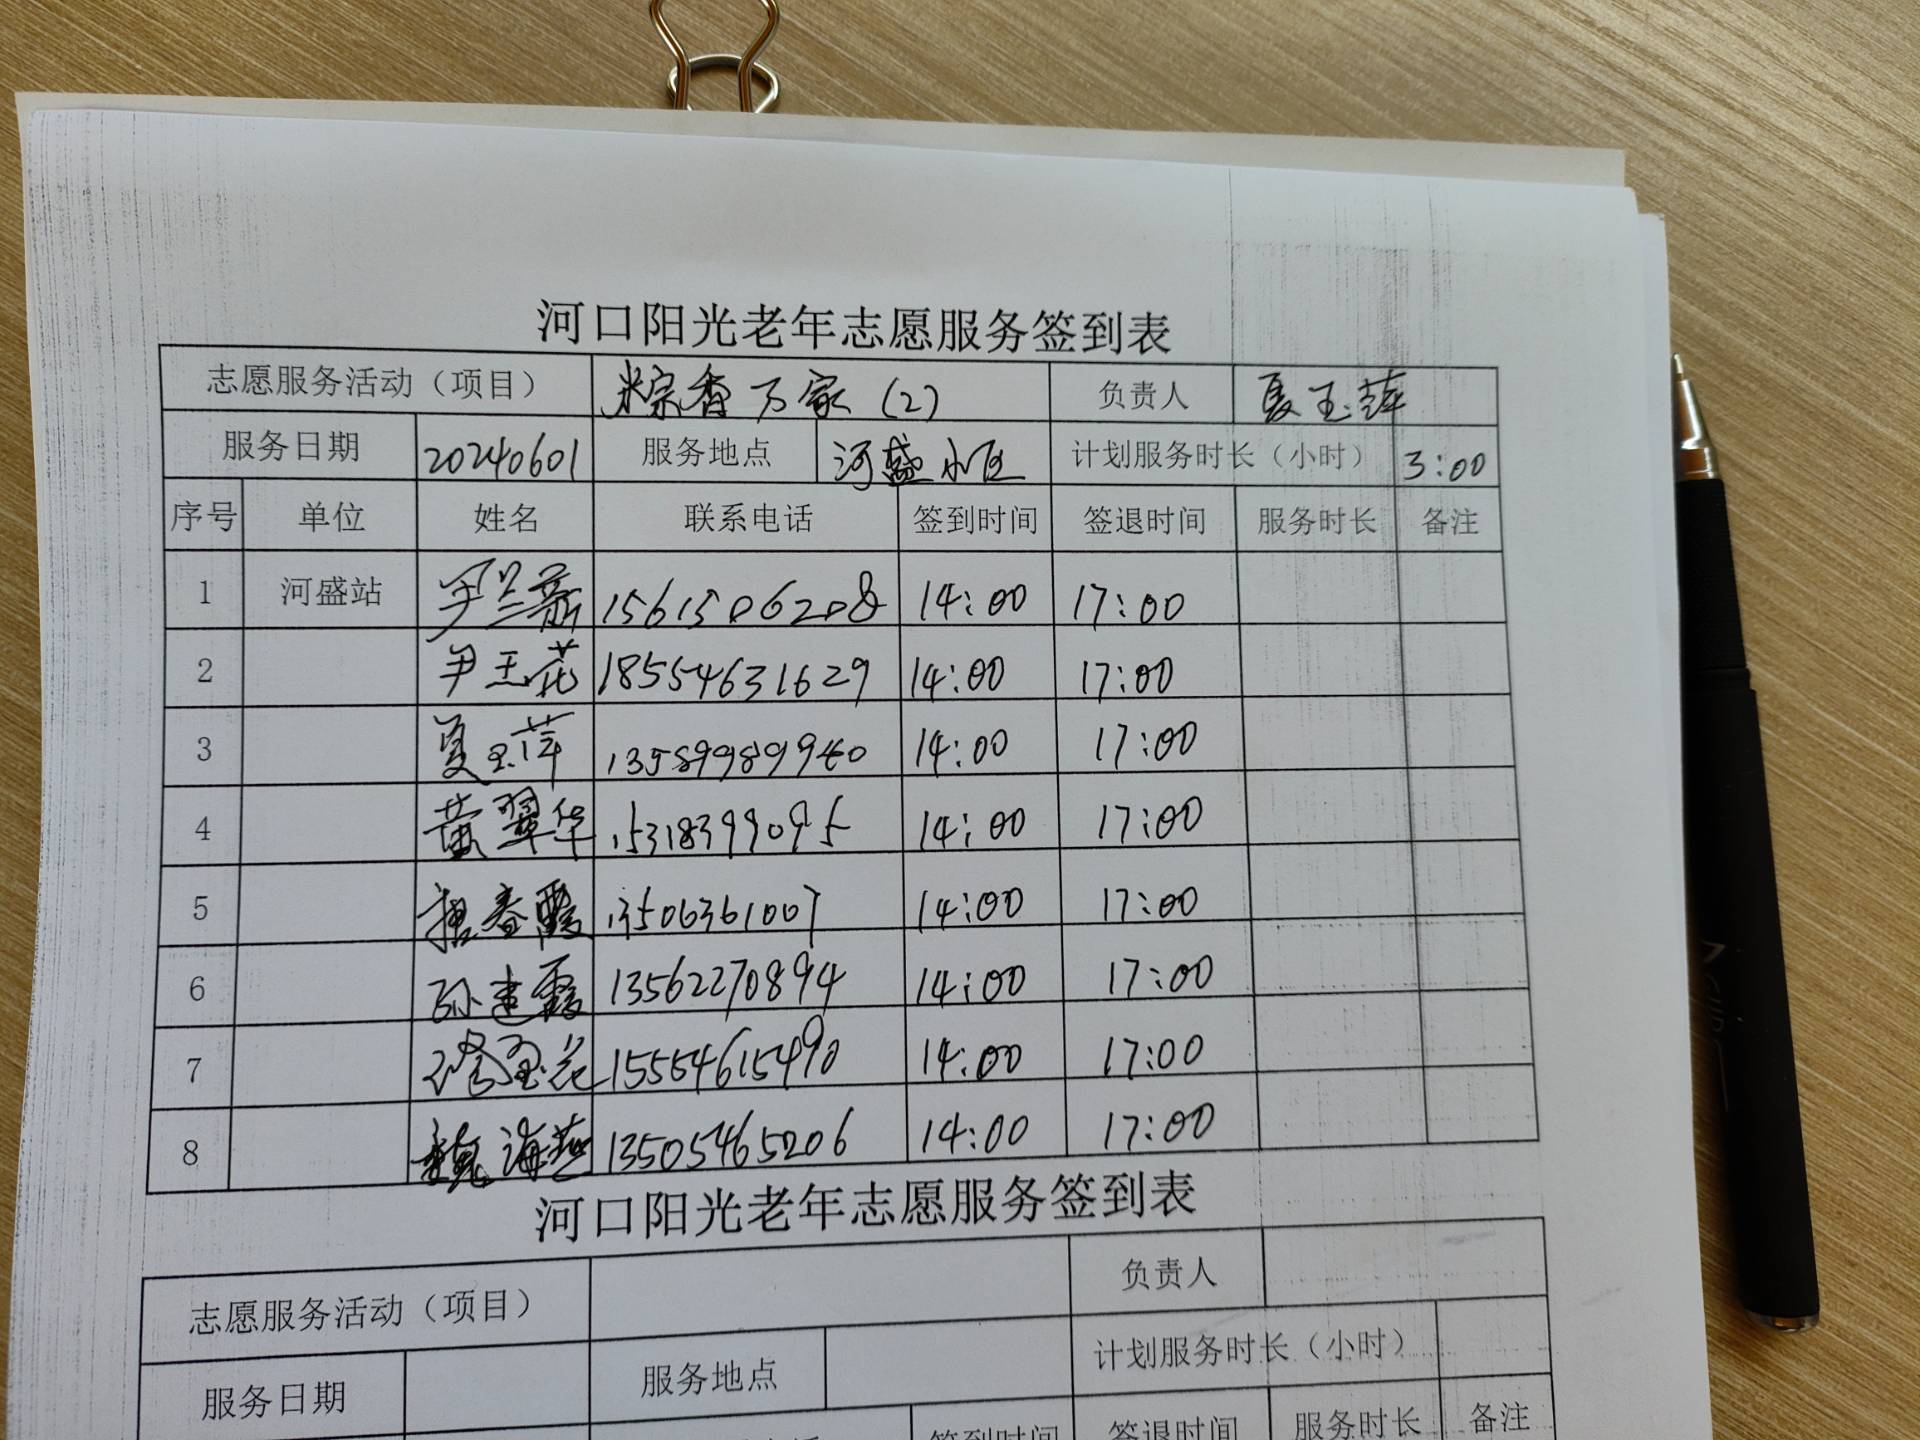 河口阳光老年志愿服务签到表
志愿服务活动（项目） 粽香万家（2） 负责人 夏玉萍
服务日期 20240601 服务地点 河盛小区 计划服务时长（小时） 3:00
序号 单位 姓名 联系电话 签到时间 签退时间 服务时长 备注
1 河盛站 尹兰新 1561506208 14:00 17:00
2 尹玉花 18554631629 14:00 17:00
3 夏玉萍 13589989940 14:00 17:00
4 黄翠华 15318399095 14:00 17:00
5 春霞 13506361007 14:00 17:00
6 孙建霞 13562270894 14:00 17:00
7 15554615490 14:00 17:00
8 魏海燕 13505465206 14:00 17:00
河口阳光老年志愿服务签到表
志愿服务活动（项目） 负责人
服务日期 服务地点 计划服务时长（小时）
签到时间 签退时间 服务时长 备注